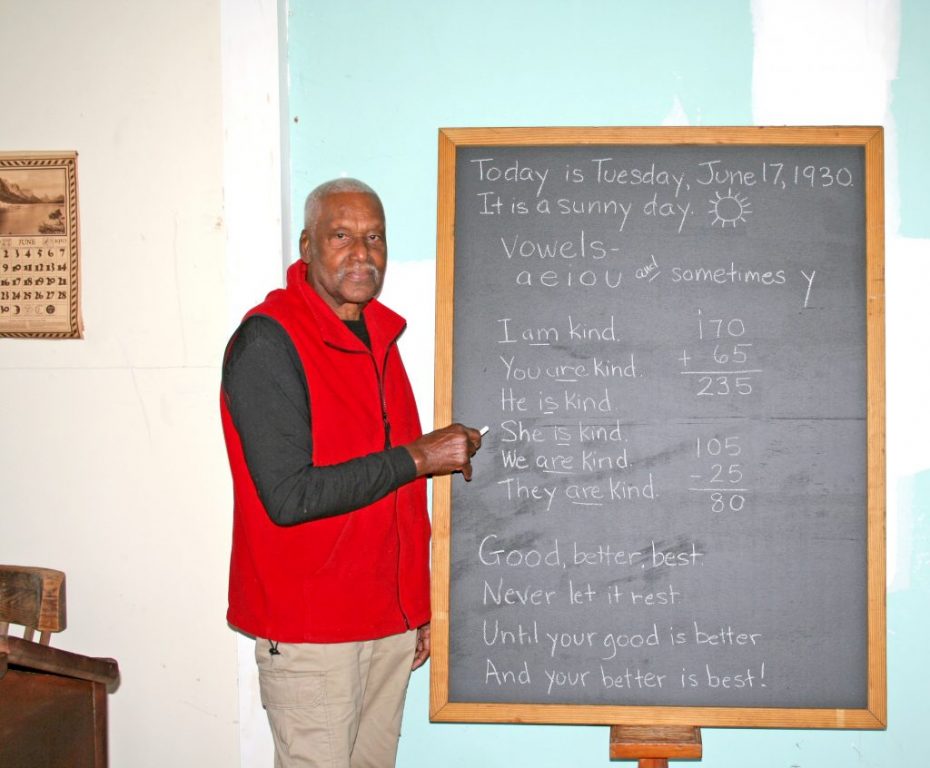 JUNE
2 3 4 5 6 7
9 10 11 12 13 14
16 17 18 19 20 21
23 24 25 26 27 28
30
Today is Tuesday, June 17, 1930.
It is a sunny day.
Vowels-
a e i o u and sometimes y
I am kind.
You are kind.
He is kind.
She is kind.
We are kind.
They are kind.
170
+ 65
235
105
- 25
80
Good, better, best.
Never let it rest.
Until your good is better
And your better is best!